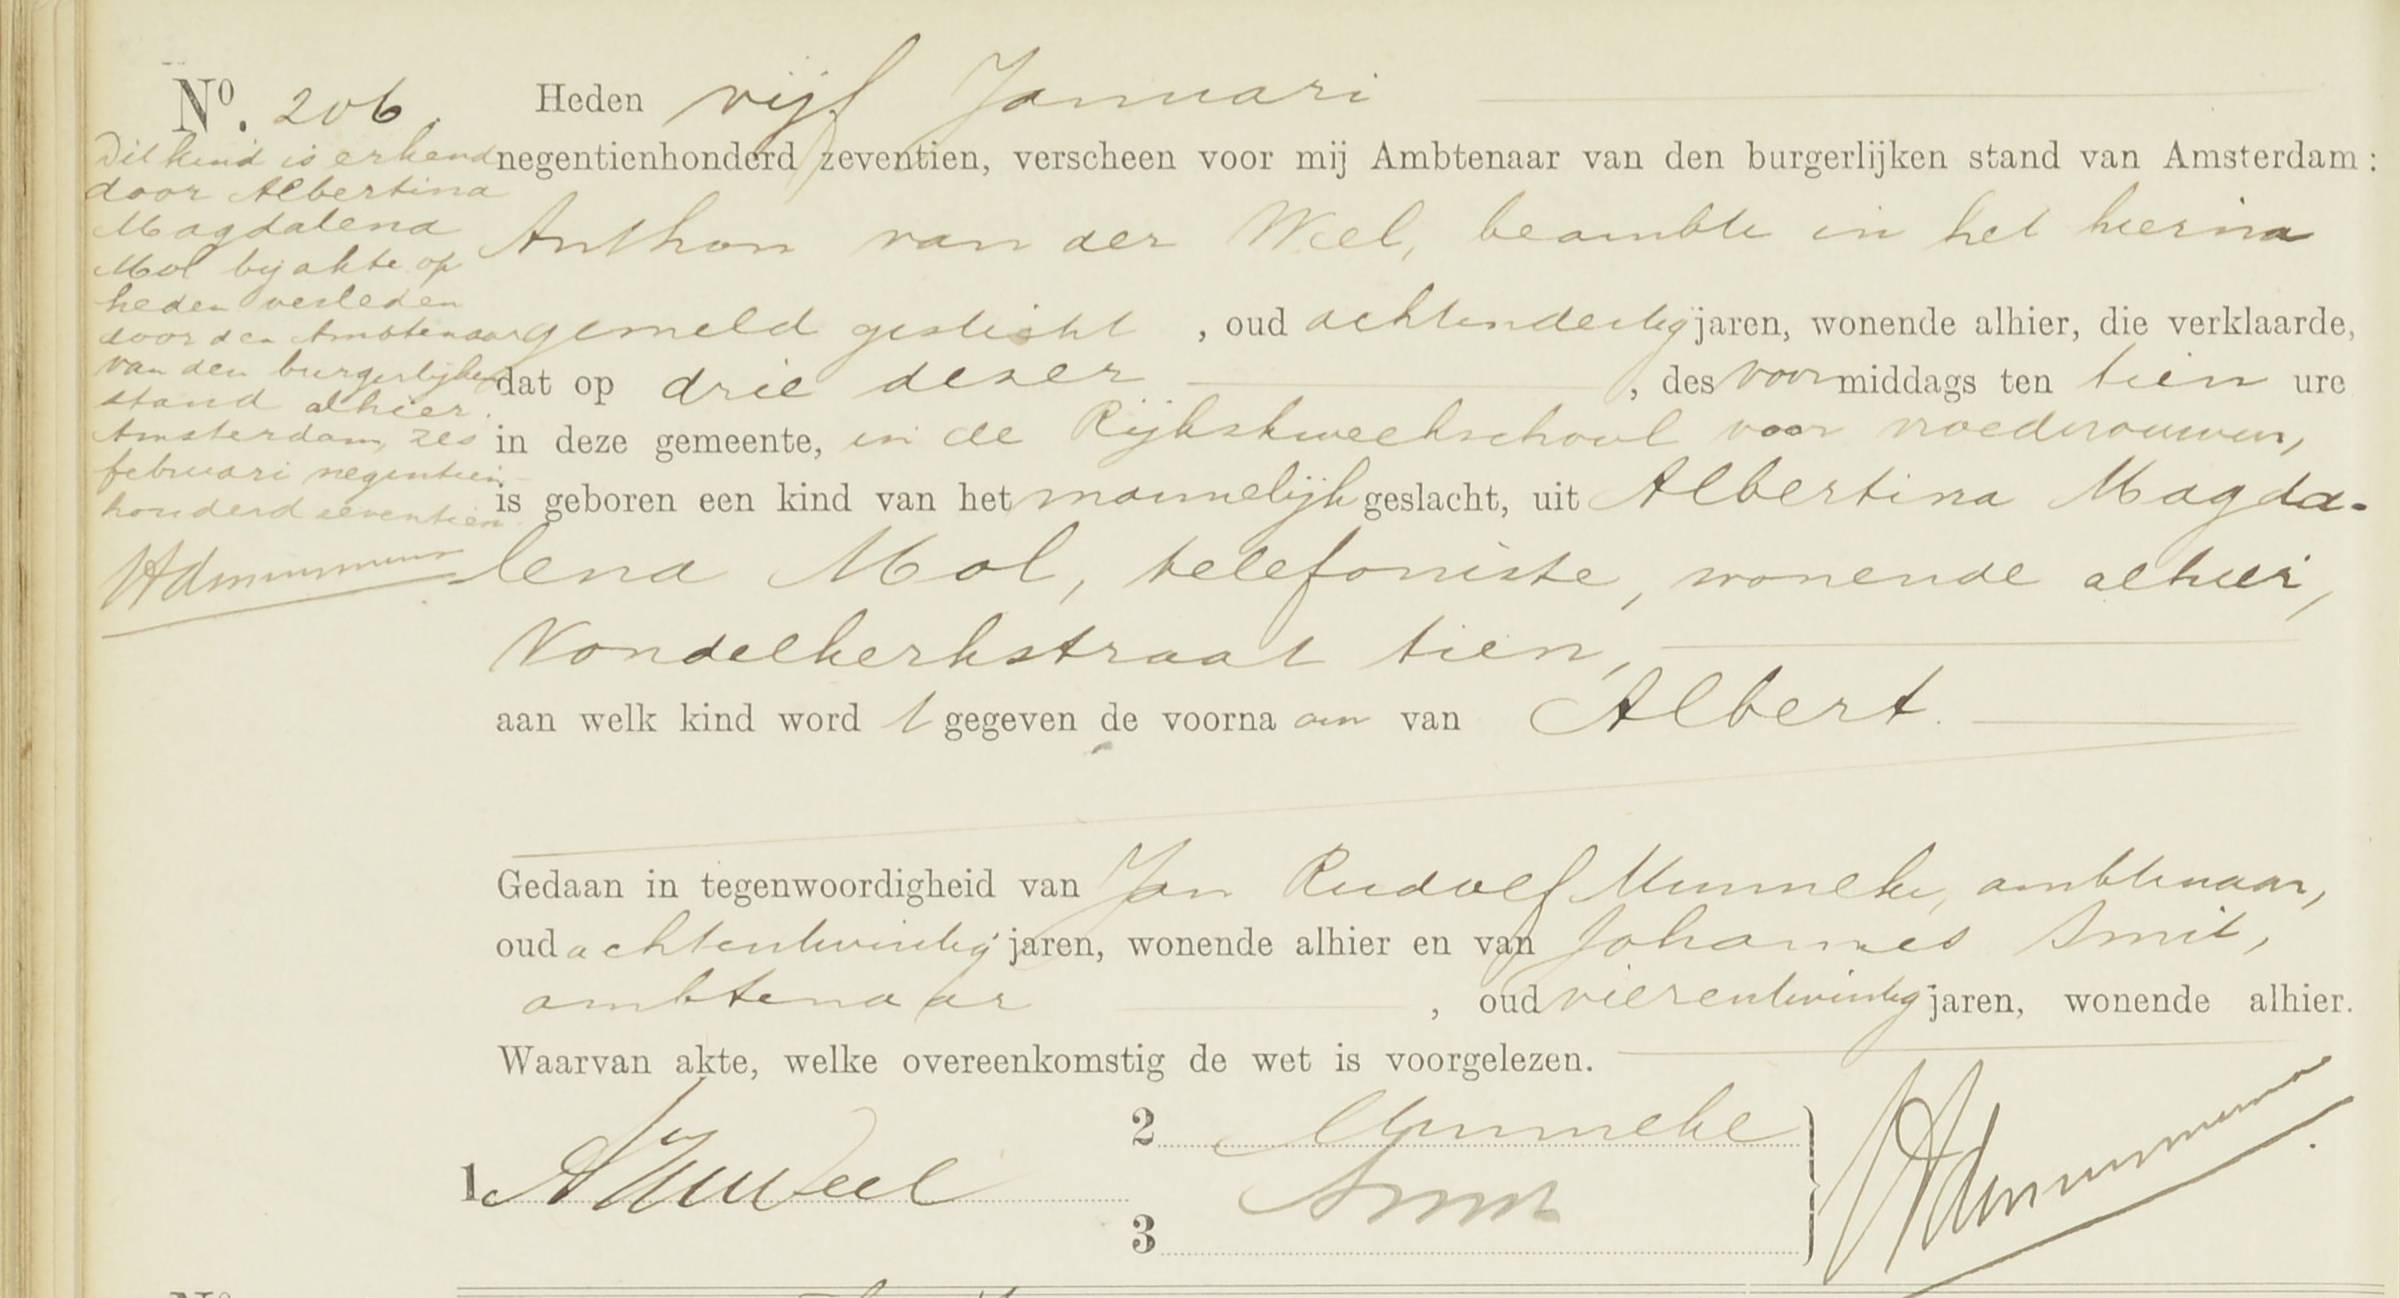 Nº. 206.
Dit kind is erkend
door Albertina
Magdalena
Mol bij akte op
heden verleden
door den Ambtenaar
van den burgerlijken
stand alhier.
Amsterdam, zes
februari negentien-
honderd zeventien
Heden vijf Januari
negentienhonderd zeventien, verscheen voor mij Ambtenaar van den burgerlijken stand van Amsterdam:
Anthon van der Weel, beambte in het hierna
gemeld gesticht, oud achtendertig jaren, wonende alhier, die verklaarde,
dat op drie dezer, des voormiddags ten tien ure
in deze gemeente, in de Rijkskweekschool voor vroedvrouwen,
is geboren een kind van het mannelijk geslacht, uit Albertina Magda-
lena Mol, telefoniste, wonende alhier,
Vondelkerkstraat tien,
aan welk kind wordt gegeven de voornaam van Albert.
Gedaan in tegenwoordigheid van Jan Rudolf Munneke, ambtenaar,
oud achtentwintig jaren, wonende alhier en van Johannes Smit,
ambtenaar, oud vierentwintig jaren, wonende alhier.
Waarvan akte, welke overeenkomstig de wet is voorgelezen.
1 AvdWeel
2 Munneke
3 Smit
Nº